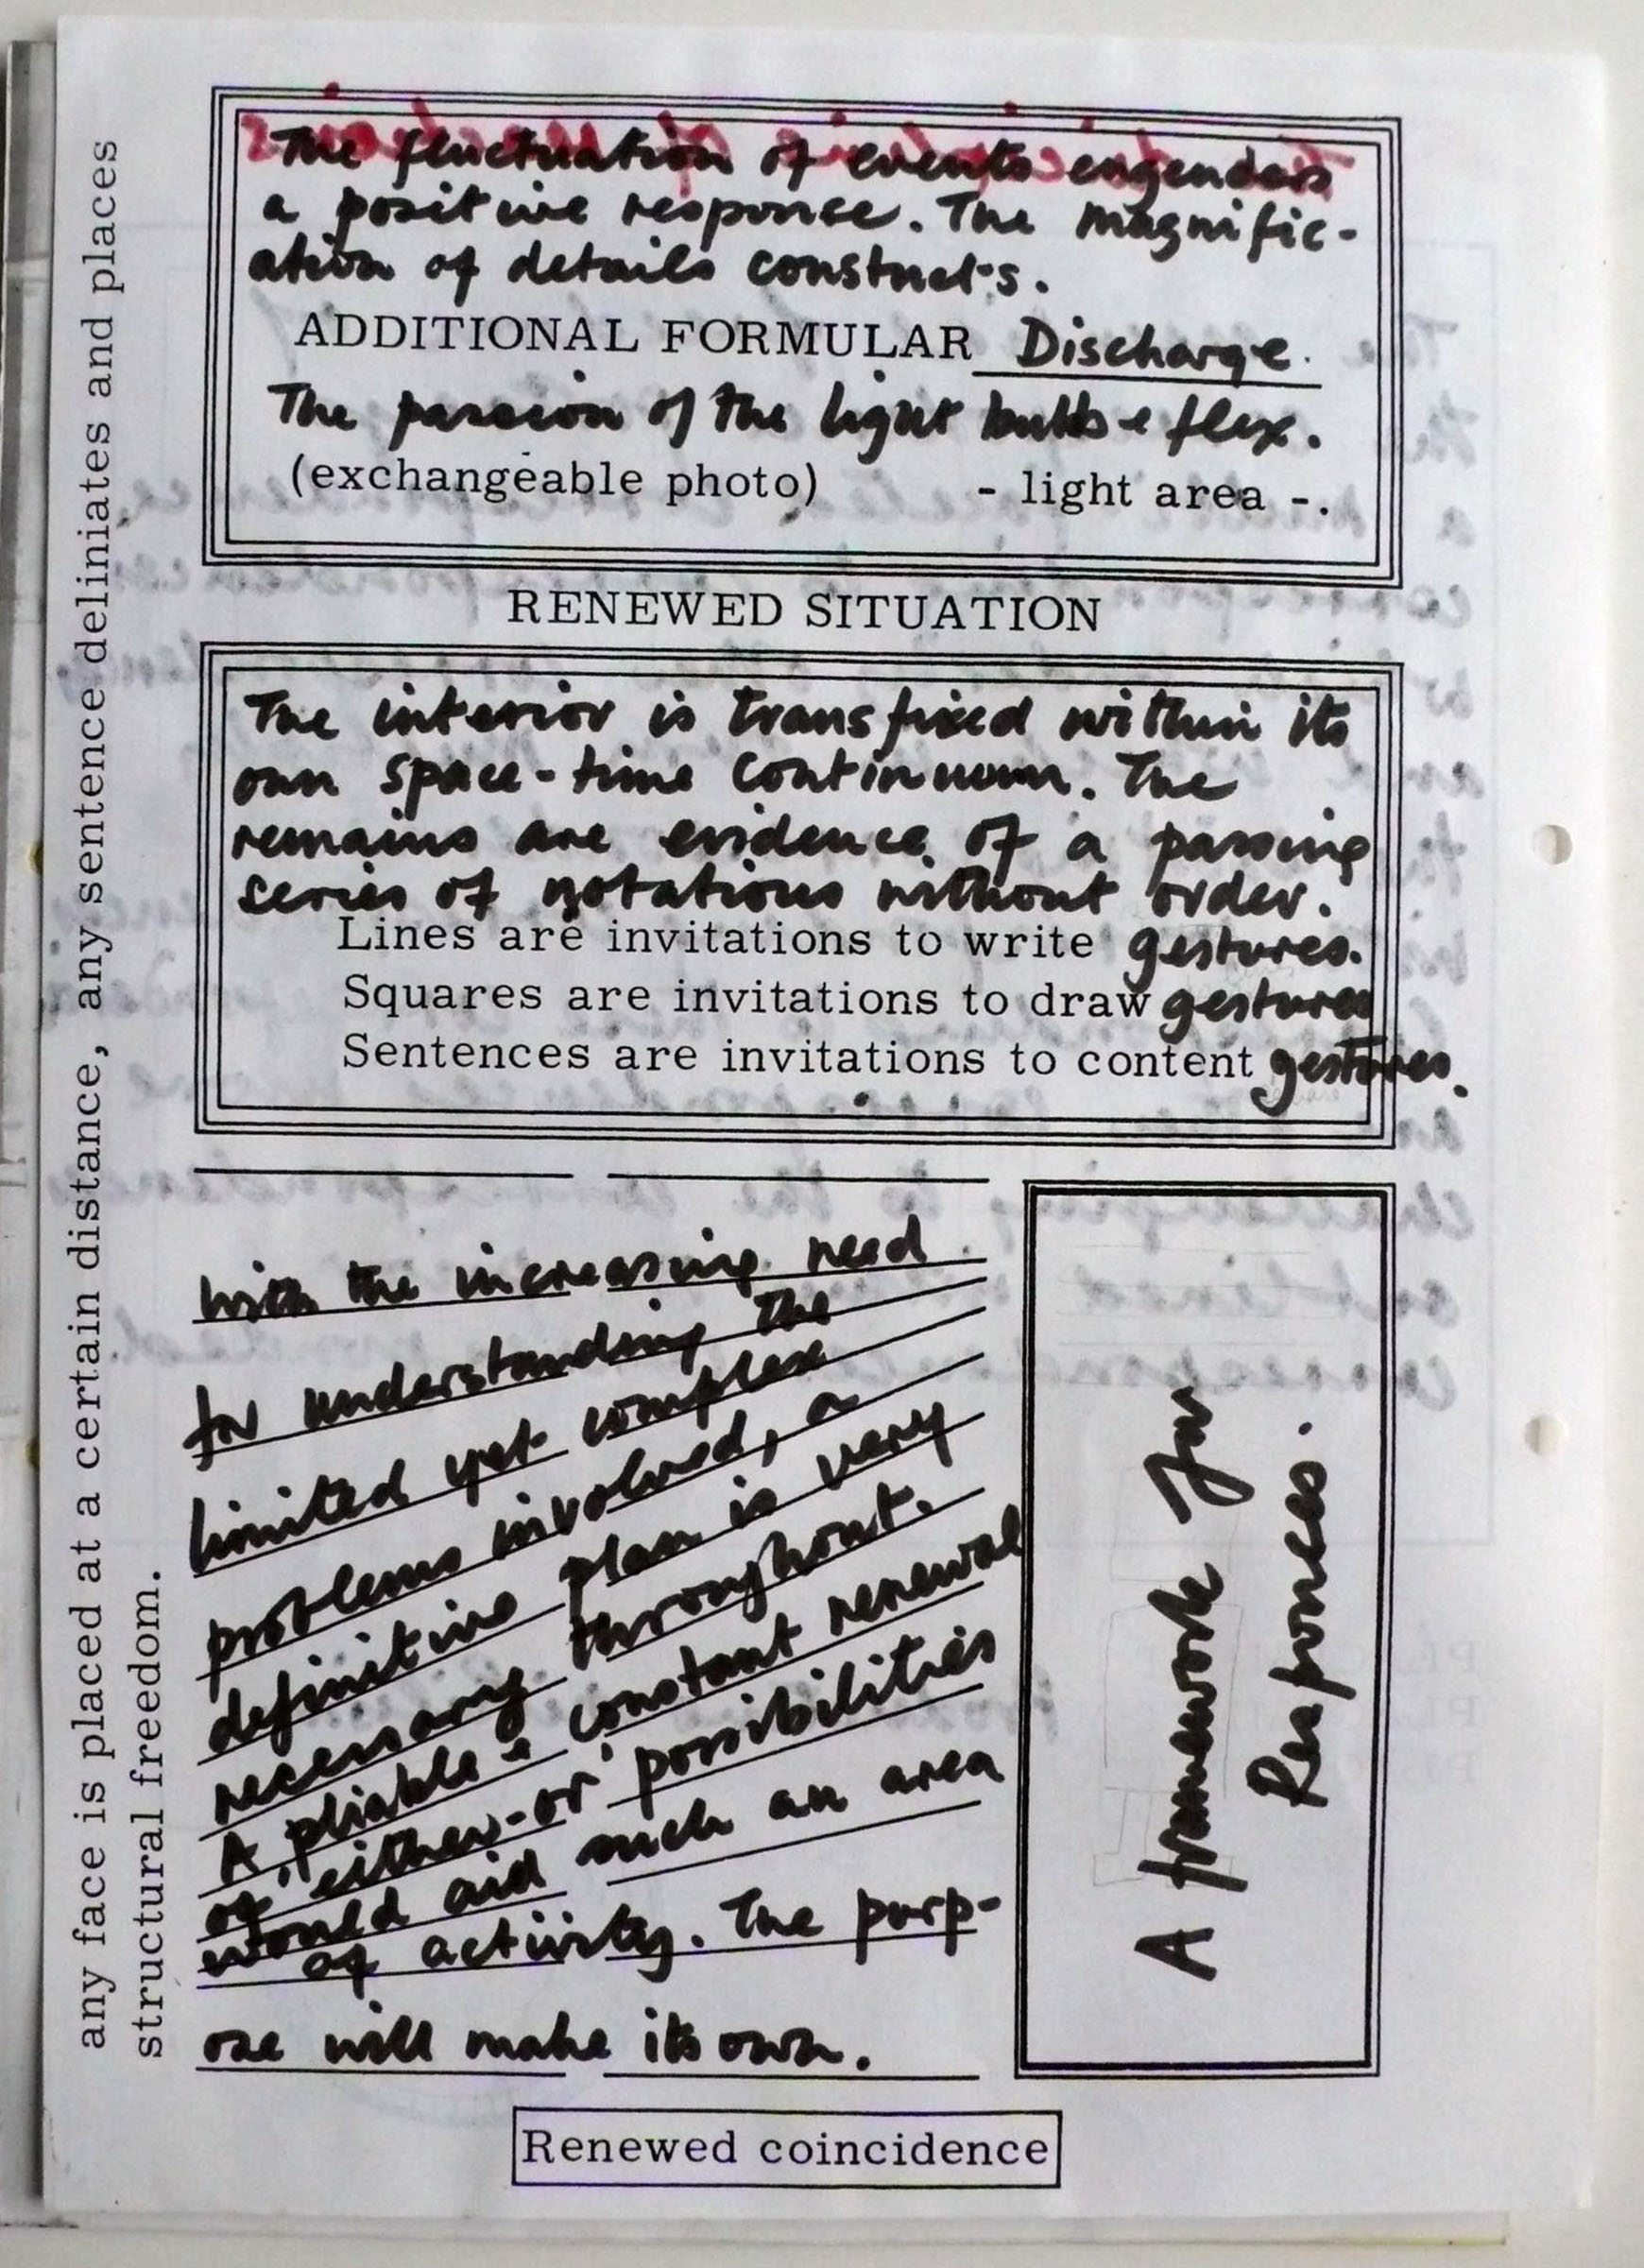 any face is placed at a certain distance, any sentence deliniates and places
structural freedom.
The fluctuation of events engenders
a positive response. The magnific-
ation of details constructs.
ADDITIONAL FORMULAR Discharge.
The passion of the light bulb & flex.
(exchangeable photo) - light area -.
RENEWED SITUATION
The interior is transfixed within its
own space-time continuum. The
remains are evidence of a passing
series of notations without order.
Lines are invitations to write gestures.
Squares are invitations to draw gestures
Sentences are invitations to content gestures.
With the increasing need
for understanding the
limited yet complex
problems involved, a
definitive plan is very
necessary throughout.
A pliable & constant renewal
of 'either-or' possibilities
would aid such an area
of activity. The purp-
ose will make its own.
A framework for
Responses.
Renewed coincidence